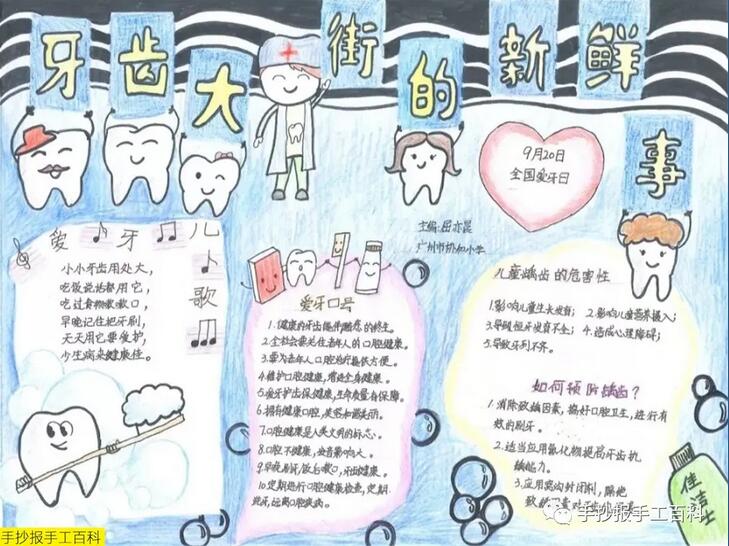 牙齿大街的新鲜事
9月20日
全国爱牙日
主编:屈亦晨
广州市协和小学
爱牙儿歌
小小牙齿用处大,
吃饭说话都用它,
吃过食物漱漱口,
早晚记住把牙刷,
天天用它要爱护,
少生病来健康佳。
爱牙口号
1.健康的牙齿能伴随您的终生。
2.全社会要关注老年人的口腔健康。
3.要为老年人口腔治疗提供方便。
4.维护口腔健康,增进全身健康。
5.爱牙护齿保健康,生命质量有保障。
6.拥有健康口腔,笑容如花美丽。
7.口腔健康是人类文明的标志。
8.口腔不健康,发音影响大。
9.早晚刷牙,饭后漱口,牙齿健康。
10.定期进行口腔健康检查,定期
洗牙,远离口腔疾病。
儿童龋齿的危害性
1.影响儿童生长发育;2.影响儿童营养摄入;
3.导致恒牙发育不全;4.造成心理障碍;
5.导致牙列不齐。
如何预防龋齿?
1.消除致龋因素,搞好口腔卫生,进行有
效的刷牙。
2.适当应用氟化物提高牙齿抗
龋能力。
3.应用窝沟封闭剂,隔绝
致龋
佳洁士
手抄报手工百科
手抄报手工百科